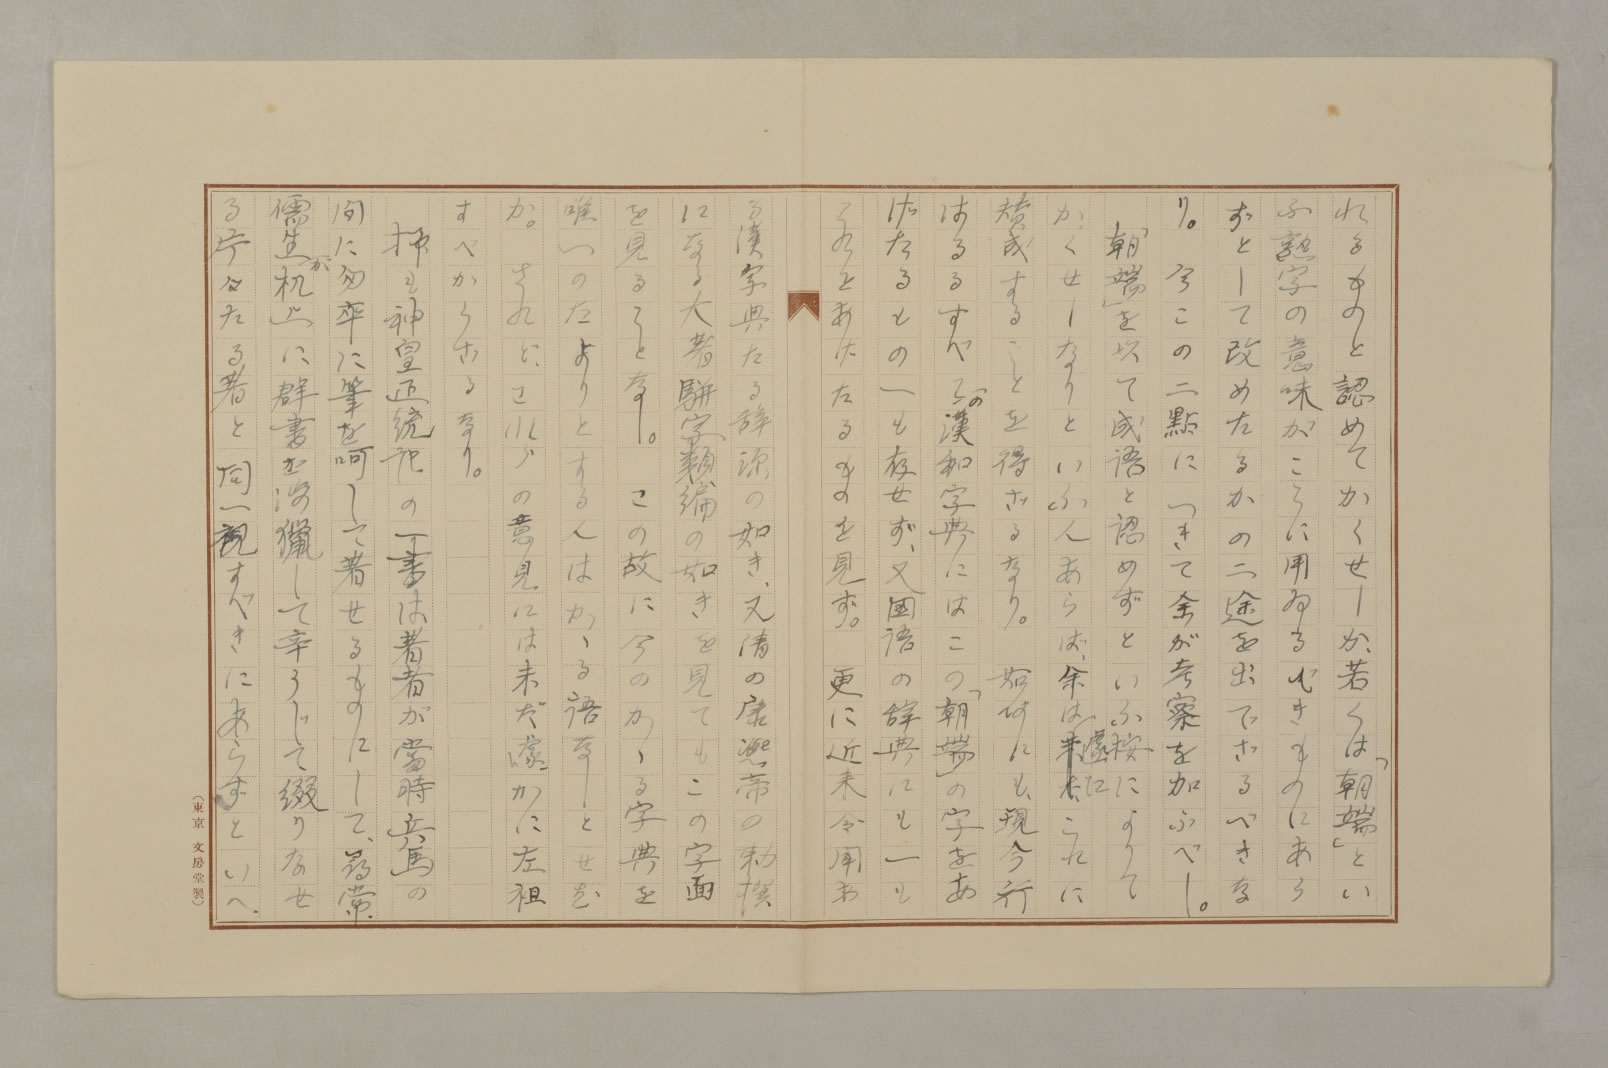 れるものと認めてかくせしか、若くは「朝端」とい
ふ熟字の意味がこゝに用ゐるべきものにあら
ずとして改めたるかの二途を出でざるべきな
り。今この二點につきて余が考察を加ふべし。
「朝端」を以て成語と認めずといふ按によりて
かくせしなりといふ人あらば、余は遽にこれに
賛成することを得ざるなり。如何にも、現今行
はるるすべての漢和字典にはこの「朝端」の字をあ
げたるもの一も存せず、又国語の辞典にも一も
これをあげたるものを見ず。更に近来令聞あ
る漢字典たる辞源の如き、又清の康熙帝の勅撰
になる大著駢字類編の如きを見てもこの字面
を見ることなし。この故に今のかゝる字典を
唯一のたよりとする人はかゝる語なしとせむ
か。されど、これらの意見には未だ遽かに左袒
すべからざるなり。
抑も神皇正統記の一書は著者が當時兵馬の
間に匆卒に筆を呵して著せるものにして、尋常
儒生が机上に群書を渉猟して辛うじて綴りなせ
る片々たる著と同一観すべきにあらずといへ
（東京 文房堂製）